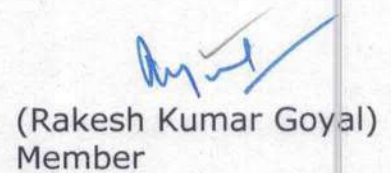 (Rakesh Kumar Goyal)
Member